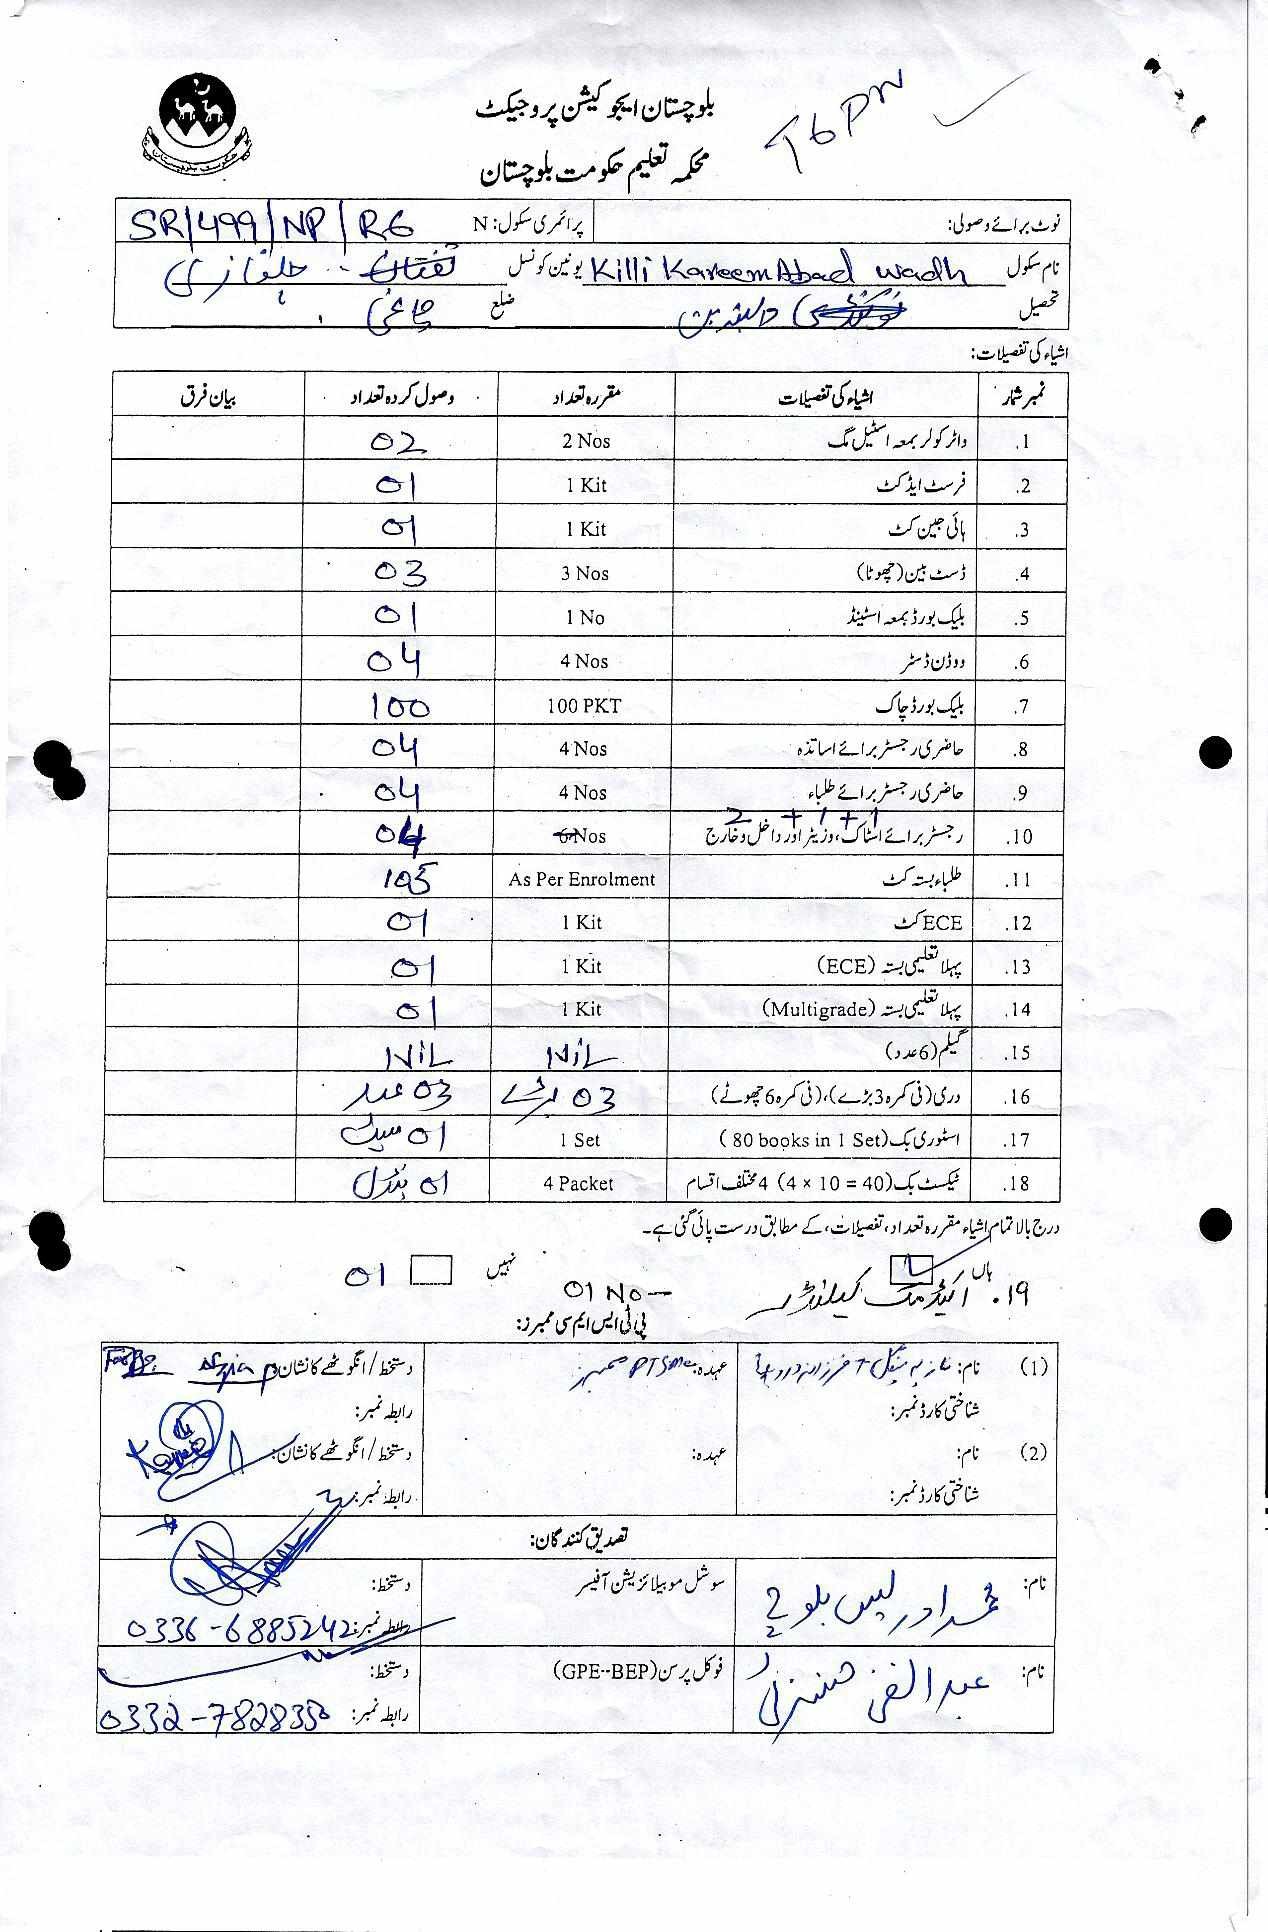 بلوچستان ایجوکیشن پروجیکٹ
محکمہ تعلیم حکومت بلوچستان
نوٹ برائے وصولی: پرائمری سکول: N SR/499/NP/RG
نام سکول Killi Kareem Abad Wadh یونین کونسل
تحصیل دالبندین ضلع چاغی
اشیاء کی تفصیلات:
نمبر شمار اشیاء کی تفصیلات مقررہ تعداد وصول کردہ تعداد بیان فرق
1. واٹر کولر بمعہ اسٹیل مگ 2 Nos 02
2. فرسٹ ایڈ کٹ 1 Kit 01
3. ہائی جین کٹ 1 Kit 01
4. ڈسٹ بین (چھوٹا) 3 Nos 03
5. بلیک بورڈ بمعہ اسٹینڈ 1 No 01
6. ووڈن ڈسٹر 4 Nos 04
7. بلیک بورڈ چاک 100 PKT 100
8. حاضری رجسٹر برائے اساتذہ 4 Nos 04
9. حاضری رجسٹر برائے طلباء 4 Nos 04
2 + 1 + 1
10. رجسٹر برائے اسٹاک، وزیٹر اور داخل و خارج 6 Nos 04
11. طلباء بستہ کٹ As Per Enrolment 105
12. ECE کٹ 1 Kit 01
13. پہلا تعلیمی بستہ (ECE) 1 Kit 01
14. پہلا تعلیمی بستہ (Multigrade) 1 Kit 01
15. گیلم (6 عدد) NiL NiL
16. دری (فی کمرہ 3 بڑے)، (فی کمرہ 6 چھوٹے) 03 بڑے 03 عدد
17. اسٹوری بک (80 books in 1 Set) 1 Set 01 سیٹ
18. ٹیکسٹ بک (4 × 10 = 40) 4 مختلف اقسام 4 Packet 01 بنڈل
درج بالا تمام اشیاء مقررہ تعداد، تفصیلات، کے مطابق درست پائی گئی ہے۔
ہاں نہیں
19. اکیڈمک کیلنڈر 01 No 01
پی ٹی ایس ایم سی ممبرز:
(1) نام: عہدہ: PTSMC ممبرز دستخط / انگوٹھے کا نشان: Nazia
شناختی کارڈ نمبر: رابطہ نمبر:
(2) نام: عہدہ: دستخط / انگوٹھے کا نشان:
شناختی کارڈ نمبر: رابطہ نمبر:
تصدیق کنندگان:
نام: محمد ادریس بلوچ سوشل موبیلائزیشن آفیسر دستخط:
رابطہ نمبر: 0336-6885242
نام: عبدالغنی فوکل پرسن (GPE--BEP) دستخط:
رابطہ نمبر: 0332-7828350